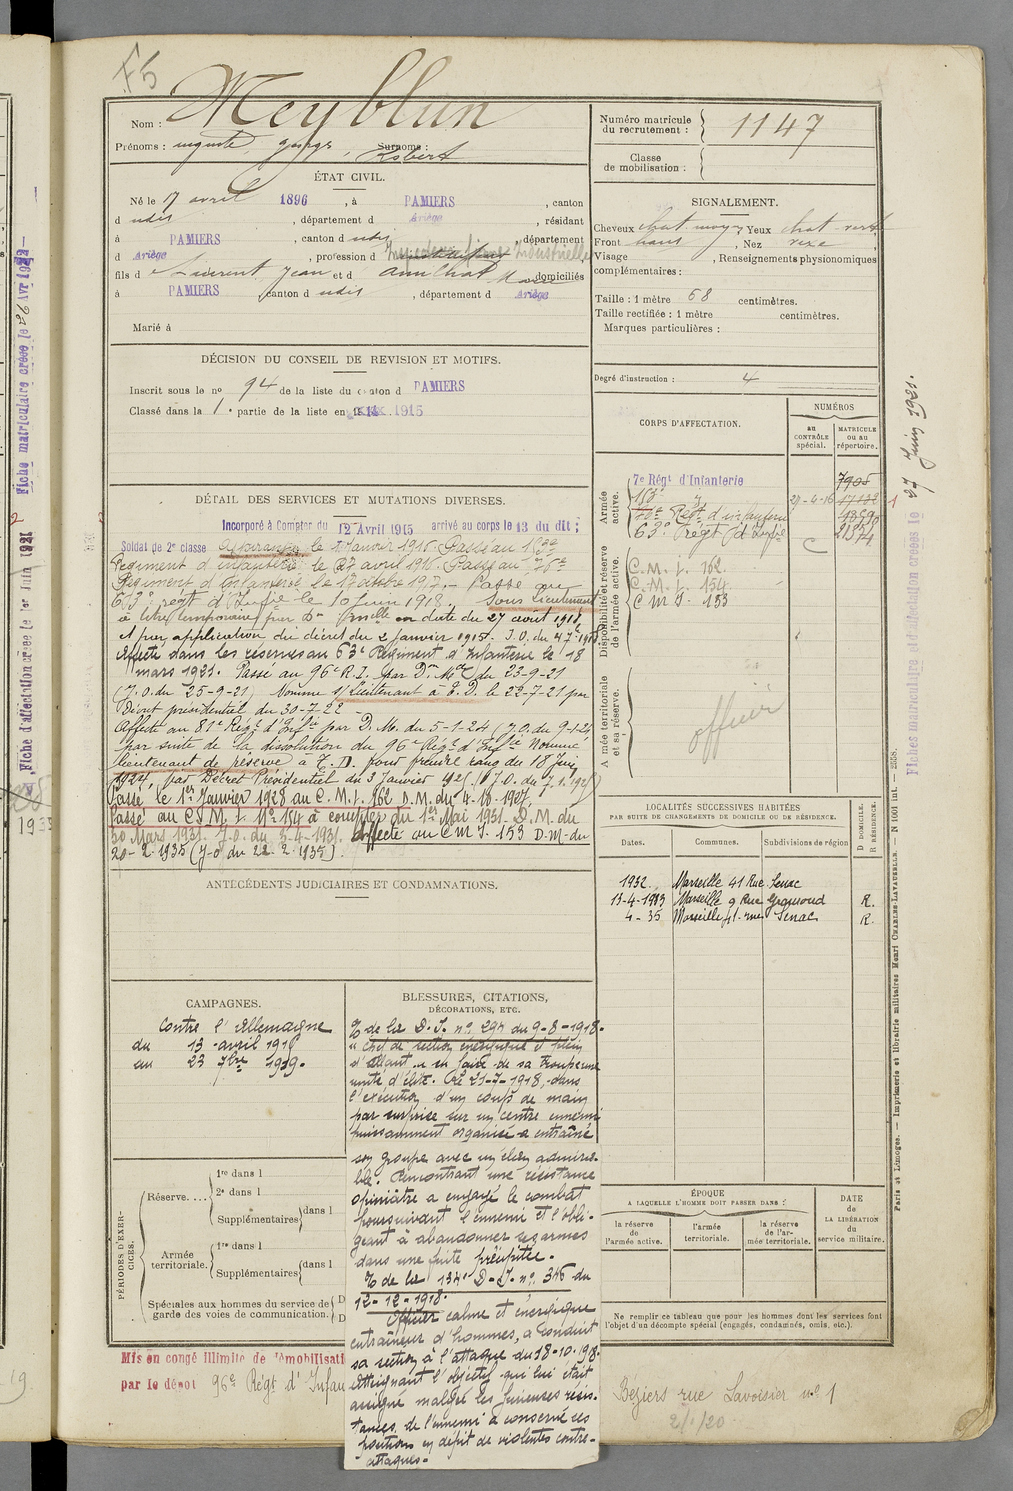 F5
Nom : Meyblun
Prénoms : auguste, georges, Robert Surnoms :
Numéro matricule du recrutement : 1147
Classe de mobilisation :
ÉTAT CIVIL.
Né le 17 avril 1896, à PAMIERS, canton
d udis, département d Ariège, résidant
à PAMIERS, canton d udis, département
d Ariège, profession d Industrielle
fils d e Laurent Jean et d domiciliés
à PAMIERS canton d udis, département d Ariège
Marié à
SIGNALEMENT.
Cheveux chat moyen Yeux chat vert
Front haut, Nez rexe
Visage , Renseignements physionomiques
complémentaires :
Taille : 1 mètre 68 centimètres.
Taille rectifiée : 1 mètre centimètres.
Marques particulières :
Degré d'instruction : 4
DÉCISION DU CONSEIL DE REVISION ET MOTIFS.
Inscrit sous le no 94 de la liste du canton d PAMIERS
Classé dans la 1e partie de la liste en 1915
DÉTAIL DES SERVICES ET MUTATIONS DIVERSES.
Incorporé à Compter du 12 Avril 1915 arrivé au corps le 13 du dit ;
Soldat de 2e classe Aspirant le 1 Janvier 1916. Passé au 153e
Régiment d'infanterie le 27 avril 1916. Passé au 76e
Régiment d'Infanterie le 17 octobre 1917. – Passé au
63e régt d'Infie le 10 Juin 1918. Sous Lieutenant
à titre temporaire par Don Mnelle en date du 27 août 1918,
et par application du décret du 2 Janvier 1915. J.O. du 4 7bre 1918
Affecté dans les réserves au 63e Régiment d'Infanterie le 18
mars 1921. Passé au 96e R.I. par Don Mlle du 23-9-21
(J.O. du 25-9-21) Nommé s/Lieutenant à T.D. le 22-7-21 par
Décret présidentiel du 30-7-22 –
Affecté au 81e Régt d'Infie par D.M. du 5-1-24 (J.O. du 9-1-24
par suite de la dissolution du 96e Régt d'Infie Nommé
lieutenant de réserve à T.D. pour prendre rang du 18 Juin
1924, par Décret Présidentiel du 3 Janvier 192 (J.O. du 7.1.192 )
Passé le 1er Janvier 1928 au C.M.I. 162 D.M. du 4-10-1927,
Passé au C.M.I. No 154 à compter du 1er Mai 1931. D.M. du
30 Mars 1931. J.O. du 5-4-1931. Affecté au C M I - 153 D.M. du
20-2-1935 (J.O du 22-2-1935).
CORPS D'AFFECTATION.
NUMÉROS
au CONTRÔLE spécial.
MATRICULE ou au répertoire.
Armée active.
7e Régt d'Infanterie 7905
153e 27-4-16 17132
76e Régt d'infanterie
63e Régt d'Infie
C
Disponibilité et réserve de l'armée active.
C.M.I. 162
C.M.I. 154
C M I - 153
Armée territoriale et sa réserve.
officier
LOCALITÉS SUCCESSIVES HABITÉES
PAR SUITE DE CHANGEMENTS DE DOMICILE OU DE RÉSIDENCE.
Dates. Communes. Subdivisions de région
D DOMICILE.
R RÉSIDENCE.
1932. Marseille 41 Rue Senac
13-4-1933 Marseille 9 Rue Gramond R.
4-35 Marseille 41 rue Senac R.
ANTÉCÉDENTS JUDICIAIRES ET CONDAMNATIONS.
CAMPAGNES.
Contre l'Allemagne
du 13 avril 1915
au 23 7bre 1919.
BLESSURES, CITATIONS,
DÉCORATIONS, ETC.
C de la D.I. no 294 du 9-8-1918.
"Chef de section énergique et plein
d'allant, a su faire de sa troupe une
unité d'élite. Le 21-7-1918, dans
l'exécution d'un coup de main
par surprise sur un centre ennemi
puissamment organisé a entraîné
son groupe avec un élan admira-
ble. Rencontrant une résistance
opiniâtre a engagé le combat
poursuivant l'ennemi et l'obli-
geant à abandonner ses armes
dans une fuite précipitée.
C de la 134e D.I. no 346 du
12-12-1918.
Officier calme et énergique
entraîneur d'hommes, a conduit
sa section à l'attaque du 18-10-1918.
Atteignant l'objectif qui lui était
assigné malgré les furieuses résis-
tances de l'ennemi a conservé ses
positions en dépit de violentes contre-
attaques.
PÉRIODES D'EXERCICES.
Réserve.... 1re dans l
2e dans l
Supplémentaires dans l
Armée territoriale. 1re dans l
Supplémentaires dans l
Spéciales aux hommes du service de
garde des voies de communication.
ÉPOQUE
A LAQUELLE L'HOMME DOIT PASSER DANS :
la réserve de l'armée active.
l'armée territoriale.
la réserve de l'armée territoriale.
DATE de LA LIBÉRATION du service militaire.
Ne remplir ce tableau que pour les hommes dont les services font
l'objet d'un décompte spécial (engagés, condamnés, omis, etc.).
Mis en congé illimité de démobilisati
par le dépot 96e Régt d'Infan
Béziers rue Lavoisier no 1
2/1/20
Paris et Limoges. — Imprimerie et librairie militaires Henri CHARLES-LAVAUZELLE. — N 1001 int. — 2558.
Fiches matriculaire et d'affectation créées le 27 Juin 1921.
Fiche matriculaire créée le 26 Avr 1922
Fiche d'affectation créée le 1er Juin 1921